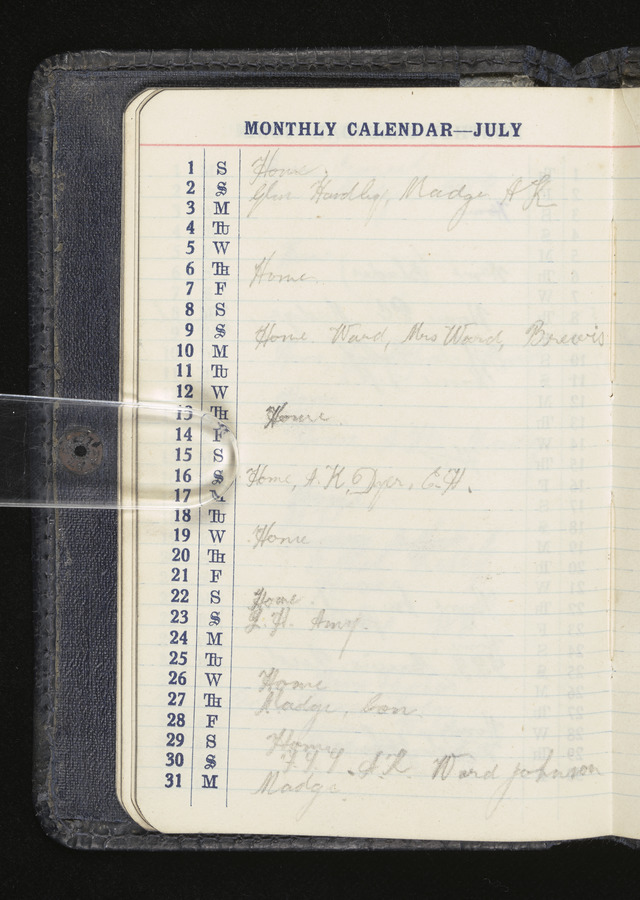 MONTHLY CALENDAR—JULY
1 S Home.
2 S Madge A K
3 M
4 Tu
5 W
6 Th Home.
7 F
8 S
9 S Home. Ward, Mrs Ward, Brewis
10 M
11 Tu
12 W
13 Th Home.
14 F
15 S
16 S Home, A. K, Dyer, E. H.
17 M
18 Tu
19 W Home
20 Th
21 F
22 S Home.
23 S Amy.
24 M
25 Tu
26 W Home
27 Th Madge, Con.
28 F
29 S Home
30 S A.K. Ward Johnson
31 M Madge